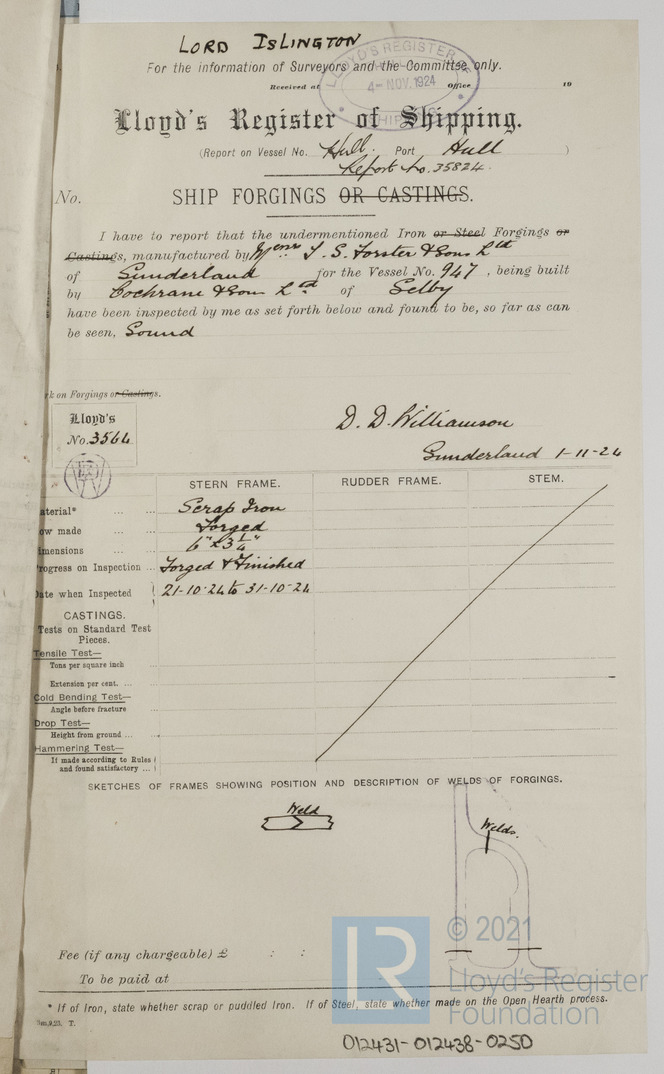 LORD ISLINGTON
For the information of Surveyors and the Committee only.
LLOYD'S REGISTER
4-NOV.1924
SHIPPING
Received at Office 19
Lloyd's Register of Shipping.
(Report on Vessel No. Hull. Port Hull )
Report No. 35824.
No. SHIP FORGINGS OR CASTINGS.
I have to report that the undermentioned Iron or Steel Forgings or
Castings, manufactured by Messrs T. S. Forster & Sons Ltd
of Sunderland for the Vessel No. 947, being built
by Cochrane & Sons Ltd of Selby
have been inspected by me as set forth below and found to be, so far as can
be seen, Sound
k on Forgings or Castings.
Lloyd's
No. 3564
D. D. Williamson
Sunderland 1-11-24
STERN FRAME. RUDDER FRAME. STEM.
aterial* ... ... Scrap Iron
ow made ... ... Forged
imensions ... ... 6" x 3 1/4"
rogress on Inspection ... Forged & Finished
ate when Inspected 21-10-24 to 31-10-24
CASTINGS.
Tests on Standard Test
Pieces.
Tensile Test—
Tons per square inch
Extension per cent. ...
Cold Bending Test—
Angle before fracture
Drop Test—
Height from ground ...
Hammering Test—
If made according to Rules
and found satisfactory ...
SKETCHES OF FRAMES SHOWING POSITION AND DESCRIPTION OF WELDS OF FORGINGS.
Weld
Welds.
Fee (if any chargeable) £ : :
To be paid at
* If of Iron, state whether scrap or puddled Iron. If of Steel, state whether made on the Open Hearth process.
m,9,23. T.
LR © 2021
Lloyd's Register
Foundation
012431-012438-0250